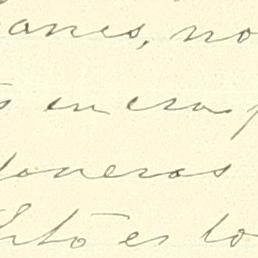 anes, no
s en esa p
oneras
Esto es lo